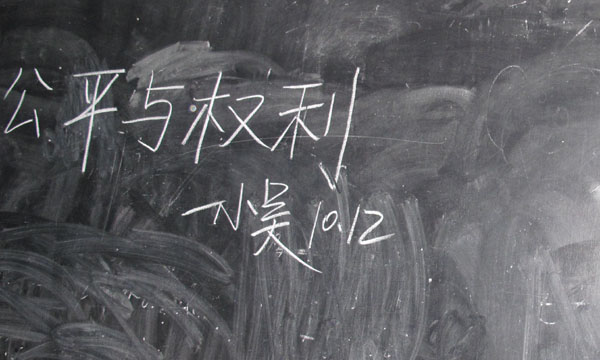 公平与权利
一小吴 10.12